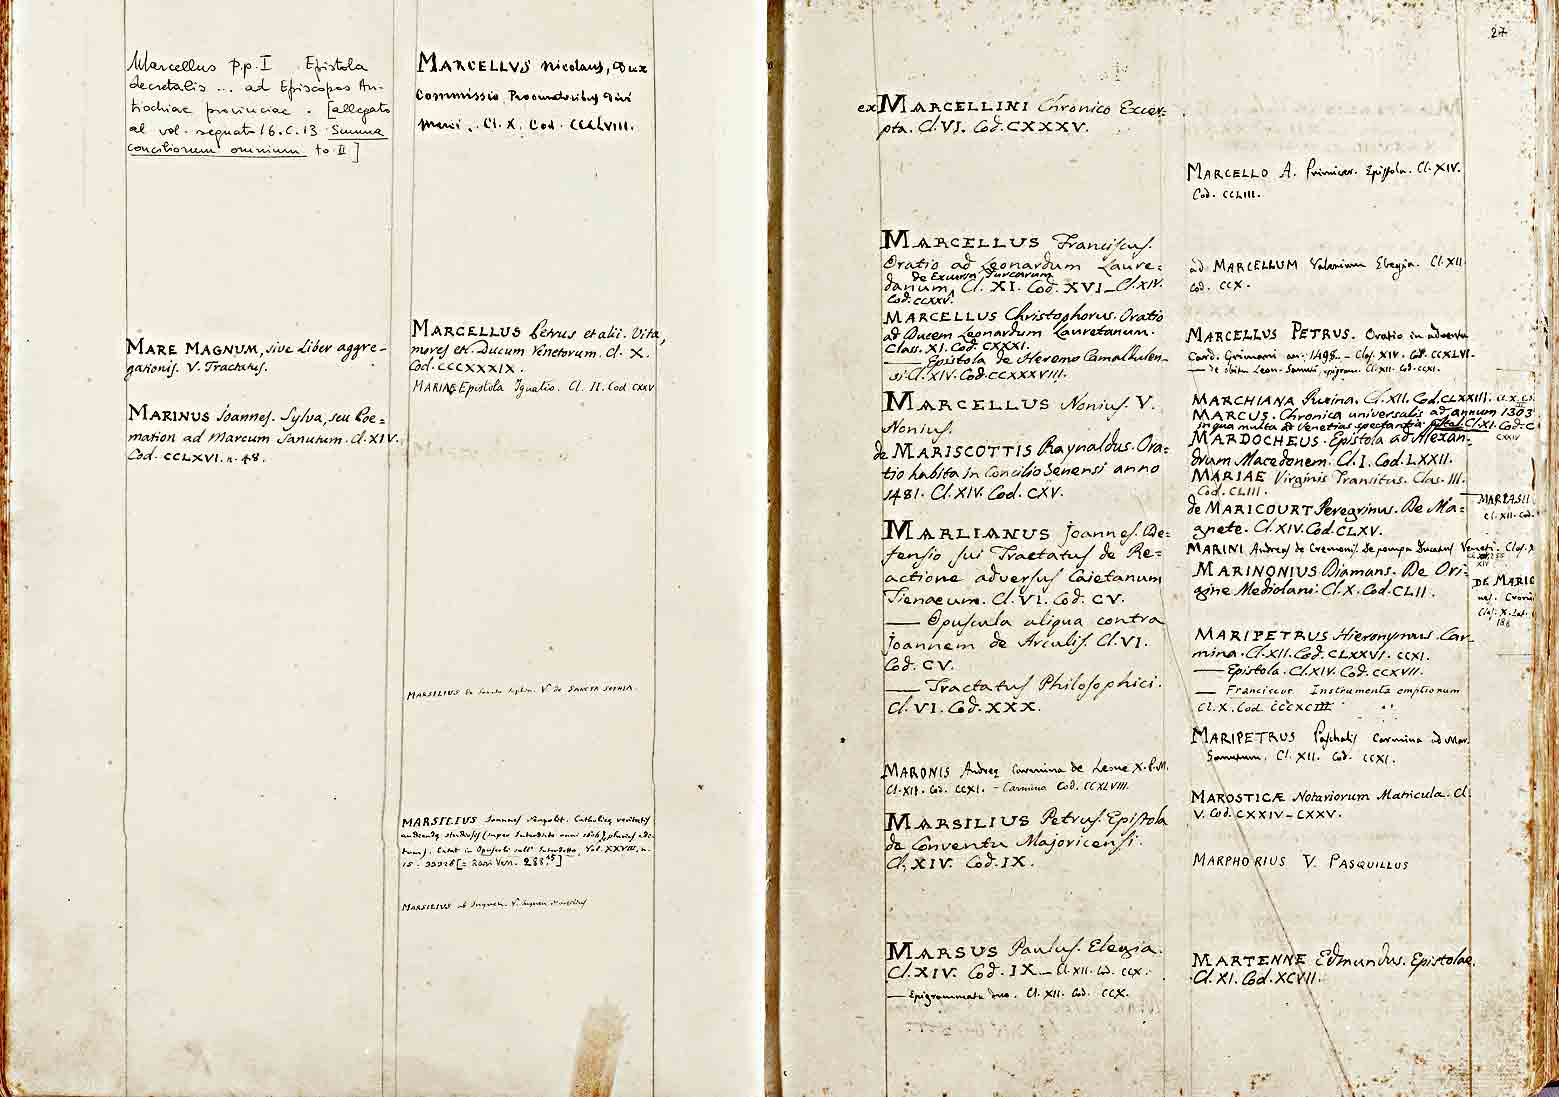 Marcellus p.p. I Epistola
decretalis ... ad Episcopos An-
tiochiae provinciae. [allegato
al vol. segnato 16. C. 13 Summa
conciliorum omnium to. II]
MARE MAGNUM, sive Liber aggre-
gationis. V. Tractatus.
MARINUS Joannes. Sylva, seu Poe=
mation ad Marcum Sanutum. Cl. XIV.
Cod. CCLXVI. n. 48.
MARCELLVS Nicolaus, Dux
Commissio Procuratoribus Divi
Marci. Cl. X. Cod. CCCLVIII.
MARCELLUS Petrus et alii. Vita,
mores etc. Ducum Venetorum. Cl. X.
Cod. CCCXXXIX.
MARIAE Epistola Ignatio. Cl. II. Cod. CXXV
MARSILIUS de Sancta Sophia. V. de SANCTA SOPHIA.
MARSILIUS Joannes Neapolit. Catholicae veritatis
Vol. XXVIII. n.
15. 33928 [= Rari Ven. 288.15]
MARSILIUS ab Inguen. V.
27
ex MARCELLINI Chronico Excer-
pta. Cl. VI. Cod. CXXXV.
MARCELLUS Franciscus.
Oratio ad Leonardum Laure=
de Excursu Turcarum
danum, Cl. XI. Cod. XVI _ Cl. XIV.
Cod. CCXXV.
MARCELLUS Christophorus. Oratio
ad Ducem Leonardum Lauretanum.
Class. XI. Cod. CXXXI.
— Epistola de Heremo Camalhulen-
si. Cl. XIV. Cod. CCXXXVIII.
MARCELLUS Nonius. V.
Nonius.
de MARISCOTTIS Raynaldus. Ora=
tio habita in Concilio Senensi anno
1481. Cl. XIV. Cod. CXV.
MARLIANUS Joannes. De=
fensio sui Tractatus de Re=
actione adversus Caietanum
Tienaeum. Cl. VI. Cod. CV.
— Opuscula aliqua contra
Joannem de Arculis. Cl. VI.
Cod. CV.
— Tractatus Philosophici.
Cl. VI. Cod. XXX.
MARONIS Andreae Carmina de Leone X. P. M.
Cl. XII. Cod. CCXI. - Carmina Cod. CCXLVIII.
MARSILIUS Petrus. Epistola
de Conventu Majoricensi.
Cl. XIV. Cod. IX.
MARSUS Paulus. Elegia.
Cl. XIV. Cod. IX _ Cl. XII. Cod. CCX.
— Epigrammata duo. Cl. XII. Cod. CCX.
MARCELLO A. Primicer. Epistola. Cl. XIV.
Cod. CCLIII.
ad MARCELLUM Valerium Elegia. Cl. XII
Cod. CCX.
MARCELLUS PETRUS. Oratio in adventu
Card. Grimani an. 1498. - Clas. XIV. Cod. CCXLVI.
— De obitu Leon. Sanuti, epigram. Cl. XII. Cod. CCXI.
MARCHIANA Ruina. Cl. XII. Cod. CLXXIII.
MARCUS. Chronica universalis ad annum 1303
in qua multa ad Venetias spectantia Cl. XI. Cod. C
CXXIV
MARDOCHEUS. Epistola ad Alexan-
drum Macedonem. Cl. I. Cod. LXXII.
MARIAE Virginis Transitus. Clas. III.
Cod. CLIII.
de MARICOURT Peregrinus. De Ma=
gnete. Cl. XIV. Cod. CLXV.
MARINI Andreas de Cremonis. De pompa Ducatus Veneti. Clas. X
XIV
MARINONIUS Diamans. De Ori=
gine Mediolani. Cl. X. Cod. CLII.
MARIPETRUS Hieronymus. Car-
mina. Cl. XII. Cod. CLXXVI. CCXI.
— Epistola. Cl. XIV. Cod. CCXVII.
— Franciscus Instrumenta emptionum
Cl. X. Cod. CCCXCIII
MARIPETRUS Paschalis Carmina ad Mar.
Sanutum. Cl. XII. Cod. CCXI.
MAROSTICÆ Notariorum Matricula. Cl.
V. Cod. CXXIV - CXXV.
MARPHORIUS V. PASQUILLUS
MARTENNE Edmundus. Epistolae.
Cl. XI. Cod. XCVII.
Cl. XII. Cod.
DE MARIG
Clas. X. Lat.
186